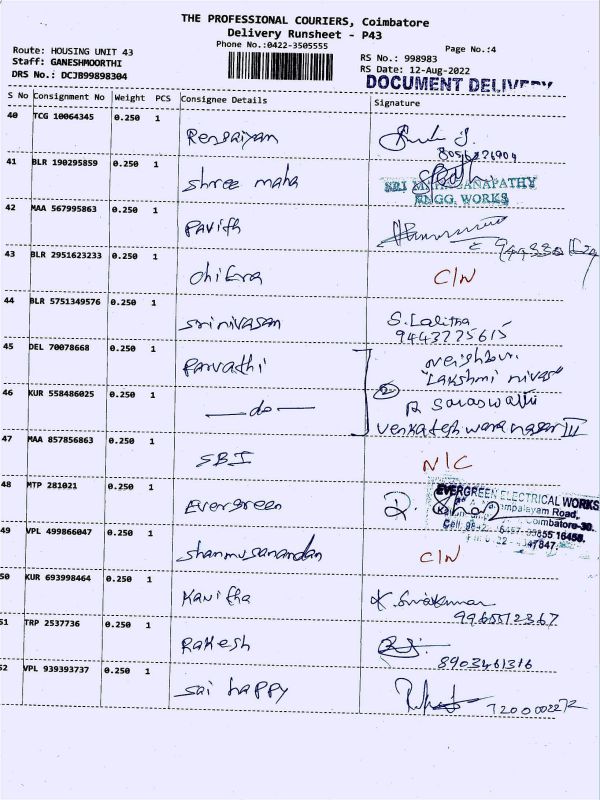 THE PROFESSIONAL COURIERS, Coimbatore
Delivery Runsheet - P43
Phone No.:0422-3505555
Page No.:4
Route: HOUSING UNIT 43
Staff: GANESHMOORTHI
DRS No.: DCJB99898304
RS No.: 998983
RS Date: 12-Aug-2022
DOCUMENT DELIVERY
S No Consignment No Weight PCS Consignee Details Signature
40 TCG 10064345 0.250 1
41 BLR 190295859 0.250 1 Shree maha
SRI GANAPATHY
ENGG. WORKS
42 MAA 567995863 0.250 1 Pavith
43 BLR 2951623233 0.250 1 Chitra C/N
44 BLR 5751349576 0.250 1 Srinivasan S. Lalitha
9443225615
45 DEL 70078668 0.250 1 Parvathi Neighbur.
"Lakshmi nivas"
46 KUR 558486025 0.250 1 —do— R Saraswathi
Venkateshwara nagar III
47 MAA 857856863 0.250 1 SBI N/C
48 MTP 281021 0.250 1 Evergreen
EVERGREEN ELECTRICAL WORKS
Road,
Coimbatore-30.
49 VPL 499866047 0.250 1 Shanmuganandan C/N
50 KUR 693998464 0.250 1 Kavitha K. Sivakumar
9965512367
51 TRP 2537736 0.250 1 Rakesh
8903461316
52 VPL 939393737 0.250 1 Sai happy
7200002272